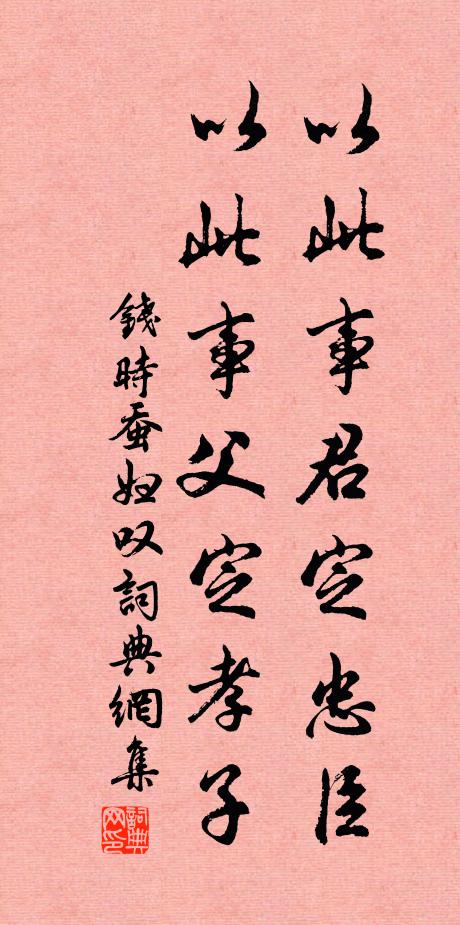 以此事君定忠臣
以此事父定孝子
錢時蚕妇叹詞典網集
詞典网印